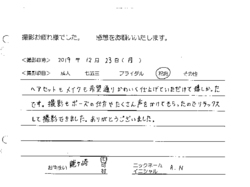 撮影お疲れ様でした。 感想をお願いいたします。
<撮影日時> 2019 年 12 月 23 日 ( 月 )
<撮影の種類> 成人 七五三 ブライダル その他
ヘアセットとメイクも希望通りかわいく仕上げていただけて嬉しかった
です。撮影もポーズの仕方やたくさん声をかけてもらったのでリラックス
して撮影できました。ありがとうございました。
お住まい ニックネーム A.N
イニシャル